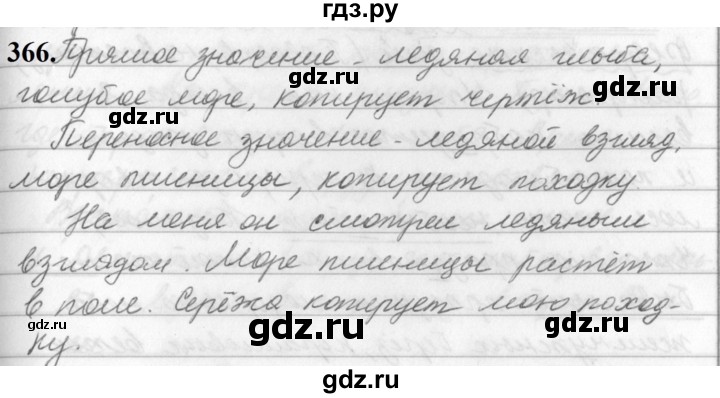 гдз.ру
366. Прямое значение - ледяная глыба,
голубое море, копирует чертёж
gdz.ru gdz.ru
Переносное значение - ледяной взгляд,
море пшеницы, копирует походку
На меня он смотрел ледяным
gdz.ru
взглядом. Море пшеницы растёт
в поле. Серёжа копирует мою поход-
gdz.ru gdz.ru gdz.ru
ку.
gdz.ru